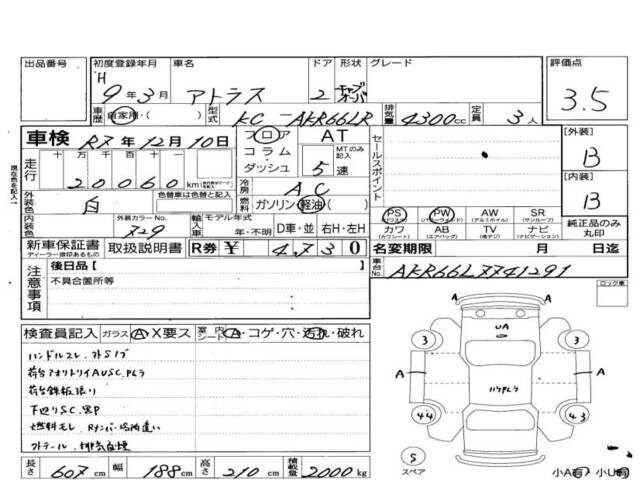 出品番号
初度登録年月 H 9年3月
車名 アトラス
ドア 2
形状 キャブオーバ
グレード
評価点 3.5
車歴 自家用・( )
型式 KC-AKR66LR
排気量 4300cc
定員 3人
車検 R7年12月10日
フロア コラム・ダッシュ
AT MTのみ記入 5速
セールスポイント
[外装] B
[内装] B
走行 十万千百十 20060 km
現在色を記入→
外装色 白
色替車は色替と記入
冷房 AC
燃料 ガソリン 軽油・( )
内装色
外装カラーNo. 729
輸入車 モデル年式 年・不明
D車・並 右H・左H
PS (パワステ) PW (パワーウィンド) AW (アルミホイル) SR (サンルーフ)
カワ (カワシート) AB (エアバッグ) TV (純テレビ) ナビ (ナビゲーション)
純正品のみ丸印
新車保証書 ディーラー捺印あるもの
取扱説明書
R券 ¥ 4,730
名変期限 月 日迄
車台No. AKR66L7741291
注意事項
後日品[ ]
不具合箇所等
ロック車
検査員記入 ガラス A・X要ス 室内シート A・コゲ・穴・汚れ・破れ
ハンドルスレ、
荷台アオリトリイAUSC.
荷台鉄板張り
下回りSC.
燃料モレ Rナンバー場所違い
A A
UA
3 3
A A
44 43
S
スペア
小A有 小U有
長さ 607cm 幅 188cm 高さ 210cm 積載量 2000kg